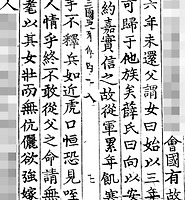 會國有故
六年未還父謂女曰始以三年
可歸于他族矣薛氏曰向以安
約嘉實信之故從軍累年飢寒
手不釋兵如近虎口恒恐見咥
人情乎終不敢從父之命請無
耄以其女壯而無伉儷欲強嫁
人